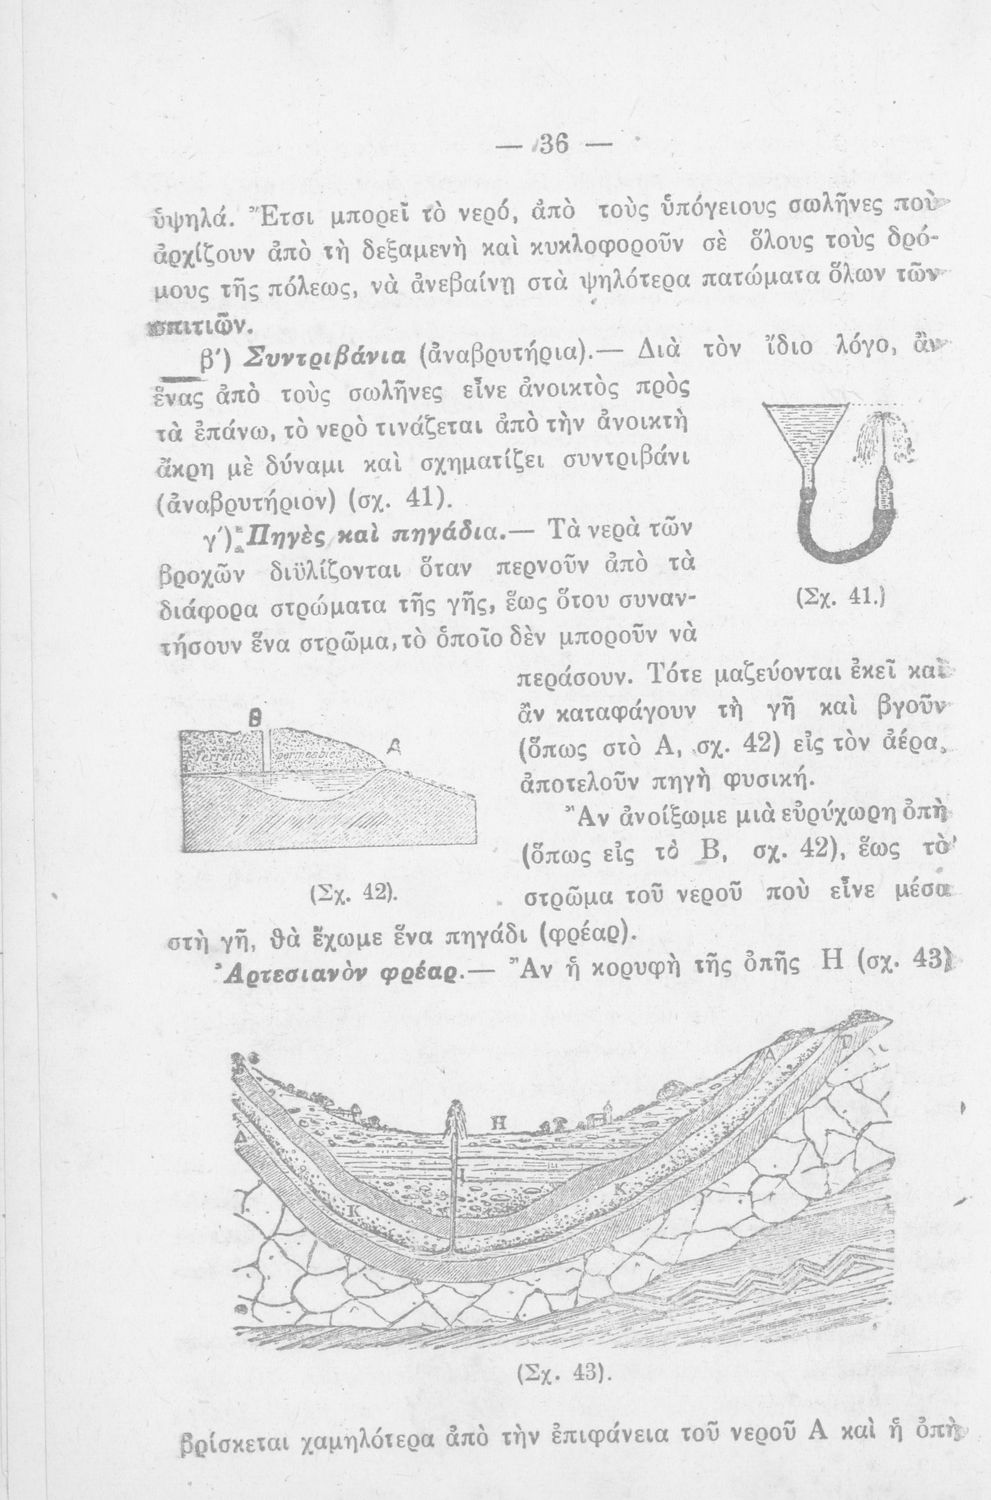 — 36 —
ὑψηλά. Ἔτσι μπορεῖ τὸ νερό, ἀπὸ τοὺς ὑπόγειους σωλῆνες ποὺ
ἀρχίζουν ἀπὸ τὴ δεξαμενὴ καὶ κυκλοφοροῦν σὲ ὅλους τοὺς δρό-
μους τῆς πόλεως, νὰ ἀνεβαίνῃ στὰ ψηλότερα πατώματα ὅλων τῶν
σπιτιῶν.
β′) Συντριβάνια (ἀναβρυτήρια).— Διὰ τὸν ἴδιο λόγο, ἂν
ἕνας ἀπὸ τοὺς σωλῆνες εἶνε ἀνοικτὸς πρὸς
τὰ ἐπάνω, τὸ νερὸ τινάζεται ἀπὸ τὴν ἀνοικτὴ
ἄκρη μὲ δύναμι καὶ σχηματίζει συντριβάνι
(ἀναβρυτήριον) (σχ. 41).
(Σχ. 41.)
γ′) Πηγὲς καὶ πηγάδια.— Τὰ νερὰ τῶν
βροχῶν διϋλίζονται ὅταν περνοῦν ἀπὸ τὰ
διάφορα στρώματα τῆς γῆς, ἕως ὅτου συναν-
τήσουν ἕνα στρῶμα, τὸ ὁποῖο δὲν μποροῦν νὰ
περάσουν. Τότε μαζεύονται ἐκεῖ καὶ
ἂν καταφάγουν τὴ γῆ καὶ βγοῦν
(ὅπως στὸ Α, σχ. 42) εἰς τὸν ἀέρα,
ἀποτελοῦν πηγὴ φυσική.
B
A
Terrain permeable
(Σχ. 42).
Ἂν ἀνοίξωμε μιὰ εὐρύχωρη ὀπὴ
(ὅπως εἰς τὸ Β, σχ. 42), ἕως τὸ
στρῶμα τοῦ νεροῦ ποὺ εἶνε μέσα
στὴ γῆ, θὰ ἔχωμε ἕνα πηγάδι (φρέαρ).
Ἀρτεσιανὸν φρέαρ.— Ἂν ἡ κορυφὴ τῆς ὀπῆς Η (σχ. 43)
A
H
I
K
K
(Σχ. 43).
βρίσκεται χαμηλότερα ἀπὸ τὴν ἐπιφάνεια τοῦ νεροῦ Α καὶ ἡ ὀπὴ